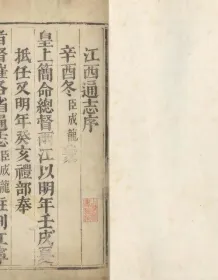 江西通志序
辛酉冬臣成龍
皇上簡命總督兩江以明年壬戌夏
抵任又明年癸亥禮部奉
旨督催各省通志臣成龍